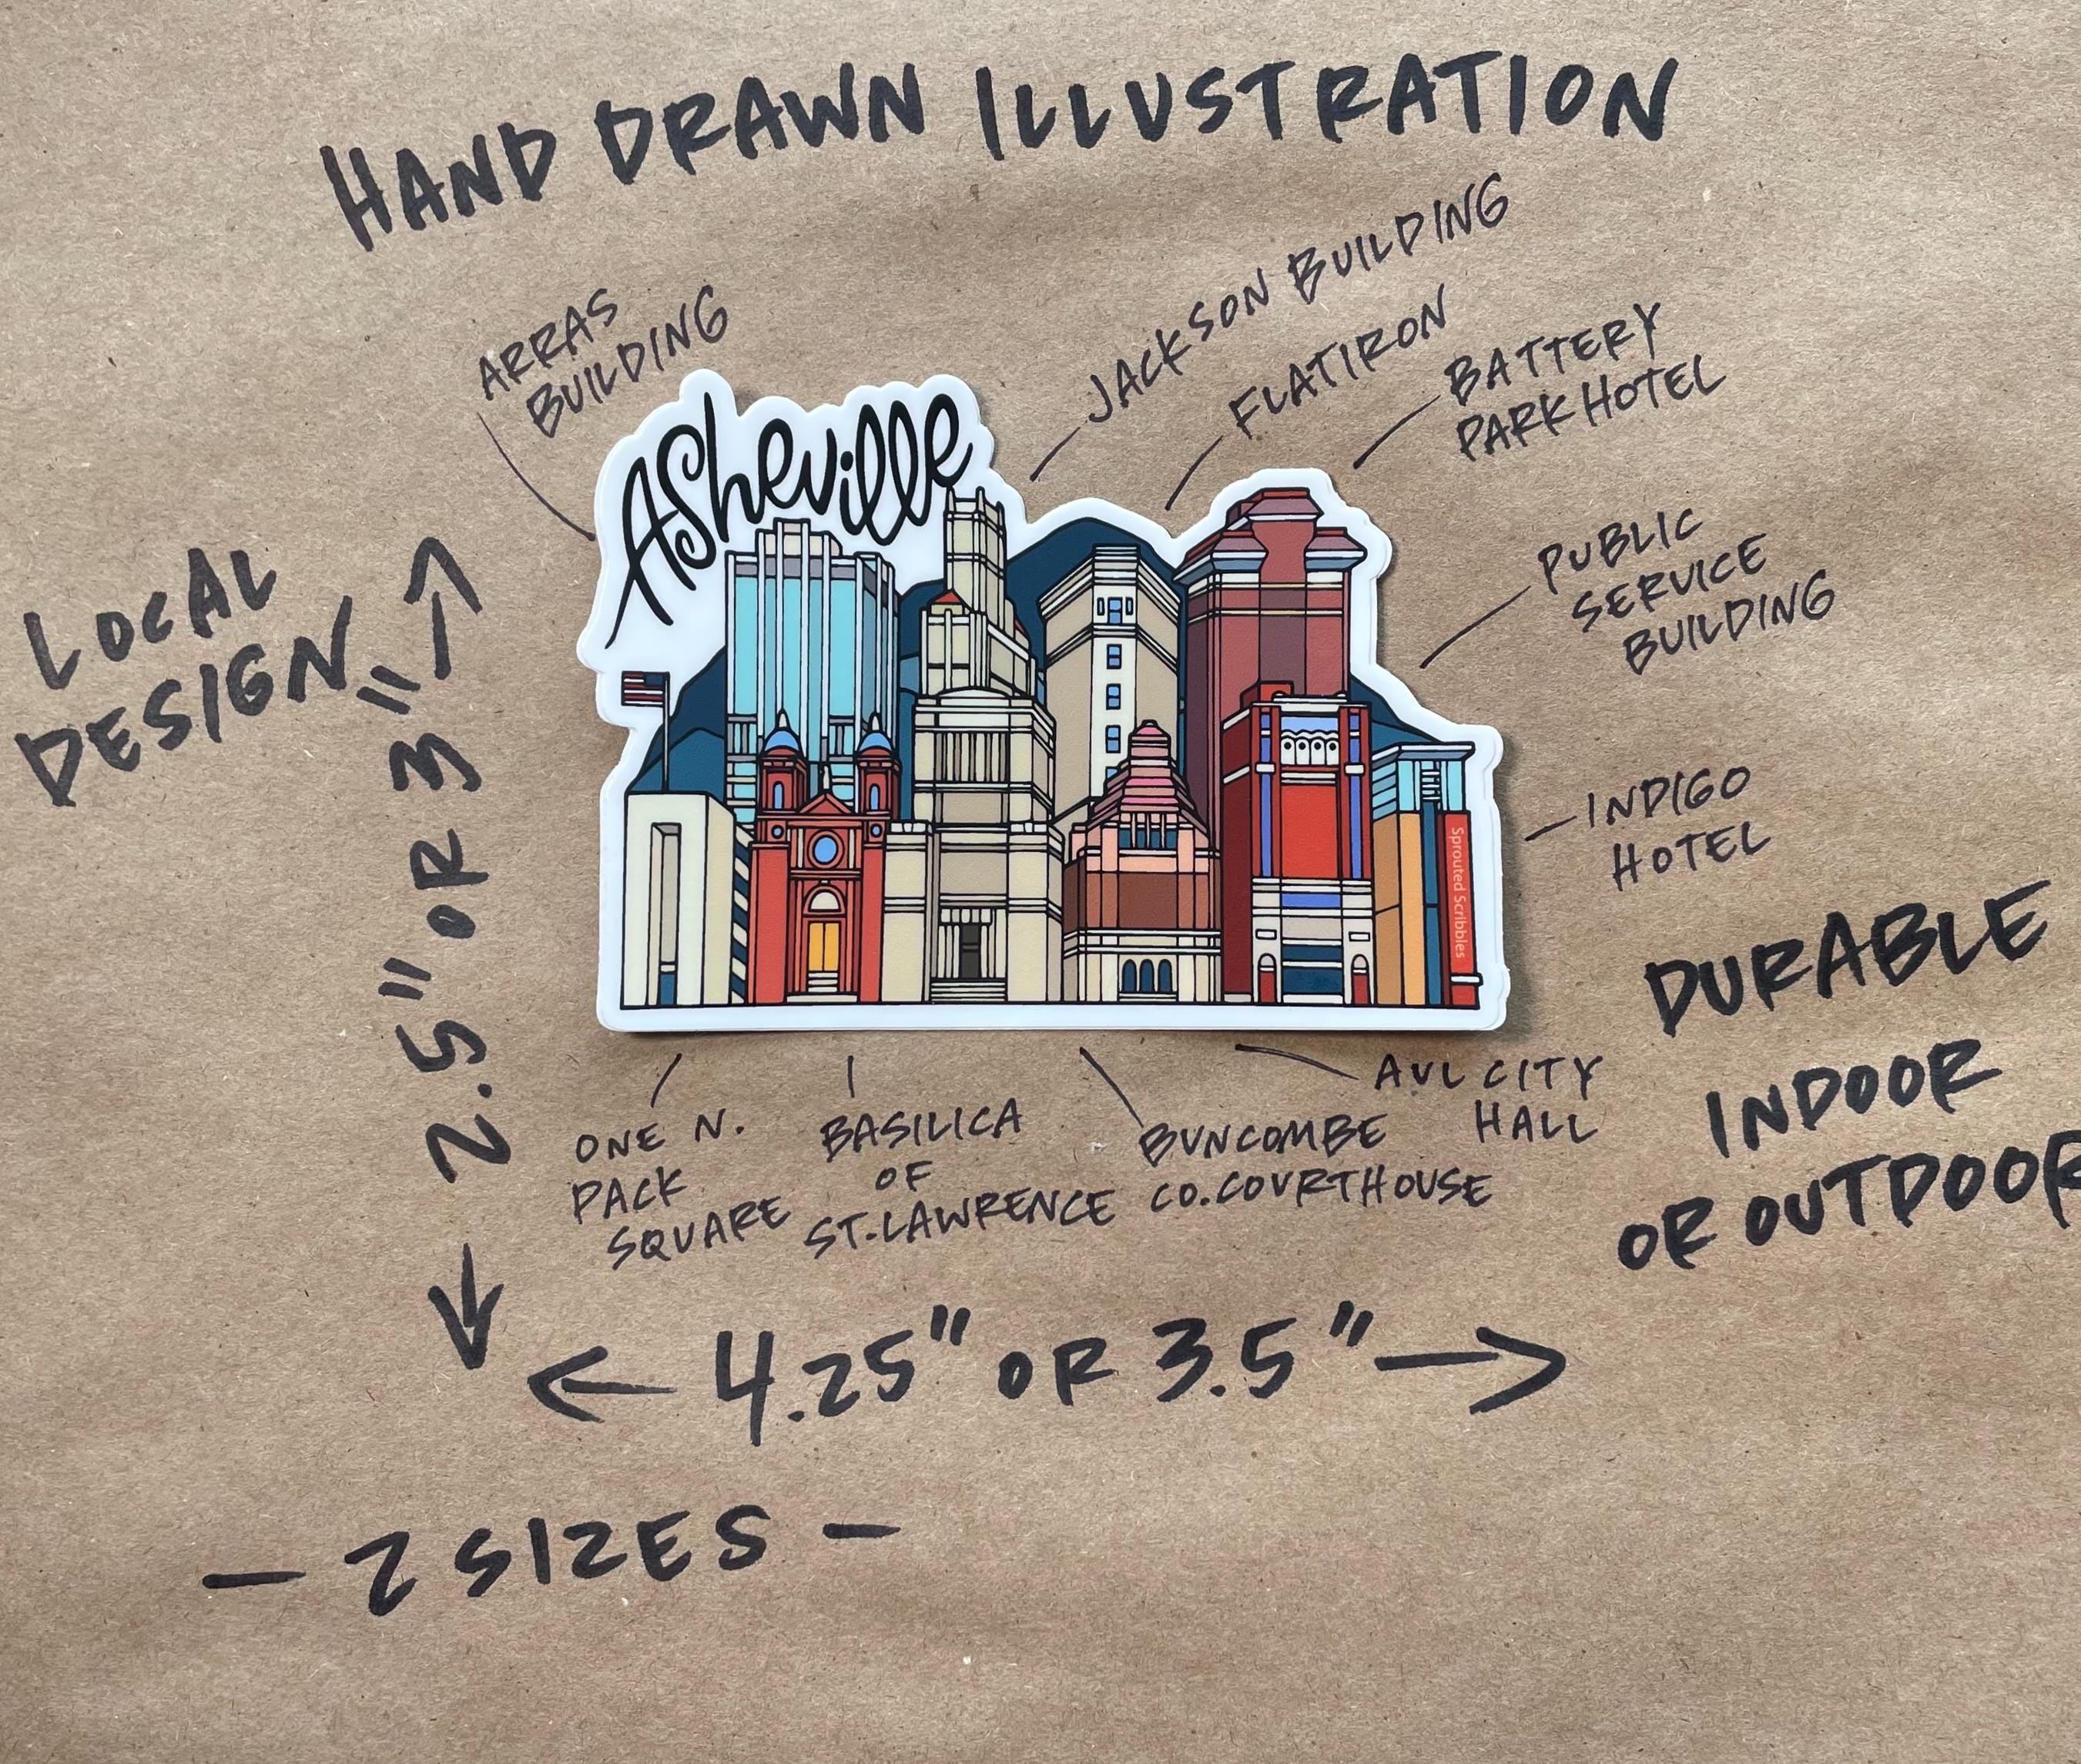 HAND DRAWN ILLUSTRATION
ARRAS
BUILDING
JACKSON BUILDING
FLATIRON
BATTERY
PARK HOTEL
PUBLIC
SERVICE
BUILDING
INDIGO
HOTEL
Asheville
Sprouted Scribbles
LOCAL
DESIGN
2.5" OR 3"
DURABLE
INDOOR
OR OUTDOOR
ONE N.
PACK
SQUARE
BASILICA
OF
ST. LAWRENCE
BUNCOMBE
CO. COURTHOUSE
AVL CITY
HALL
4.25" OR 3.5"
- 2 SIZES -